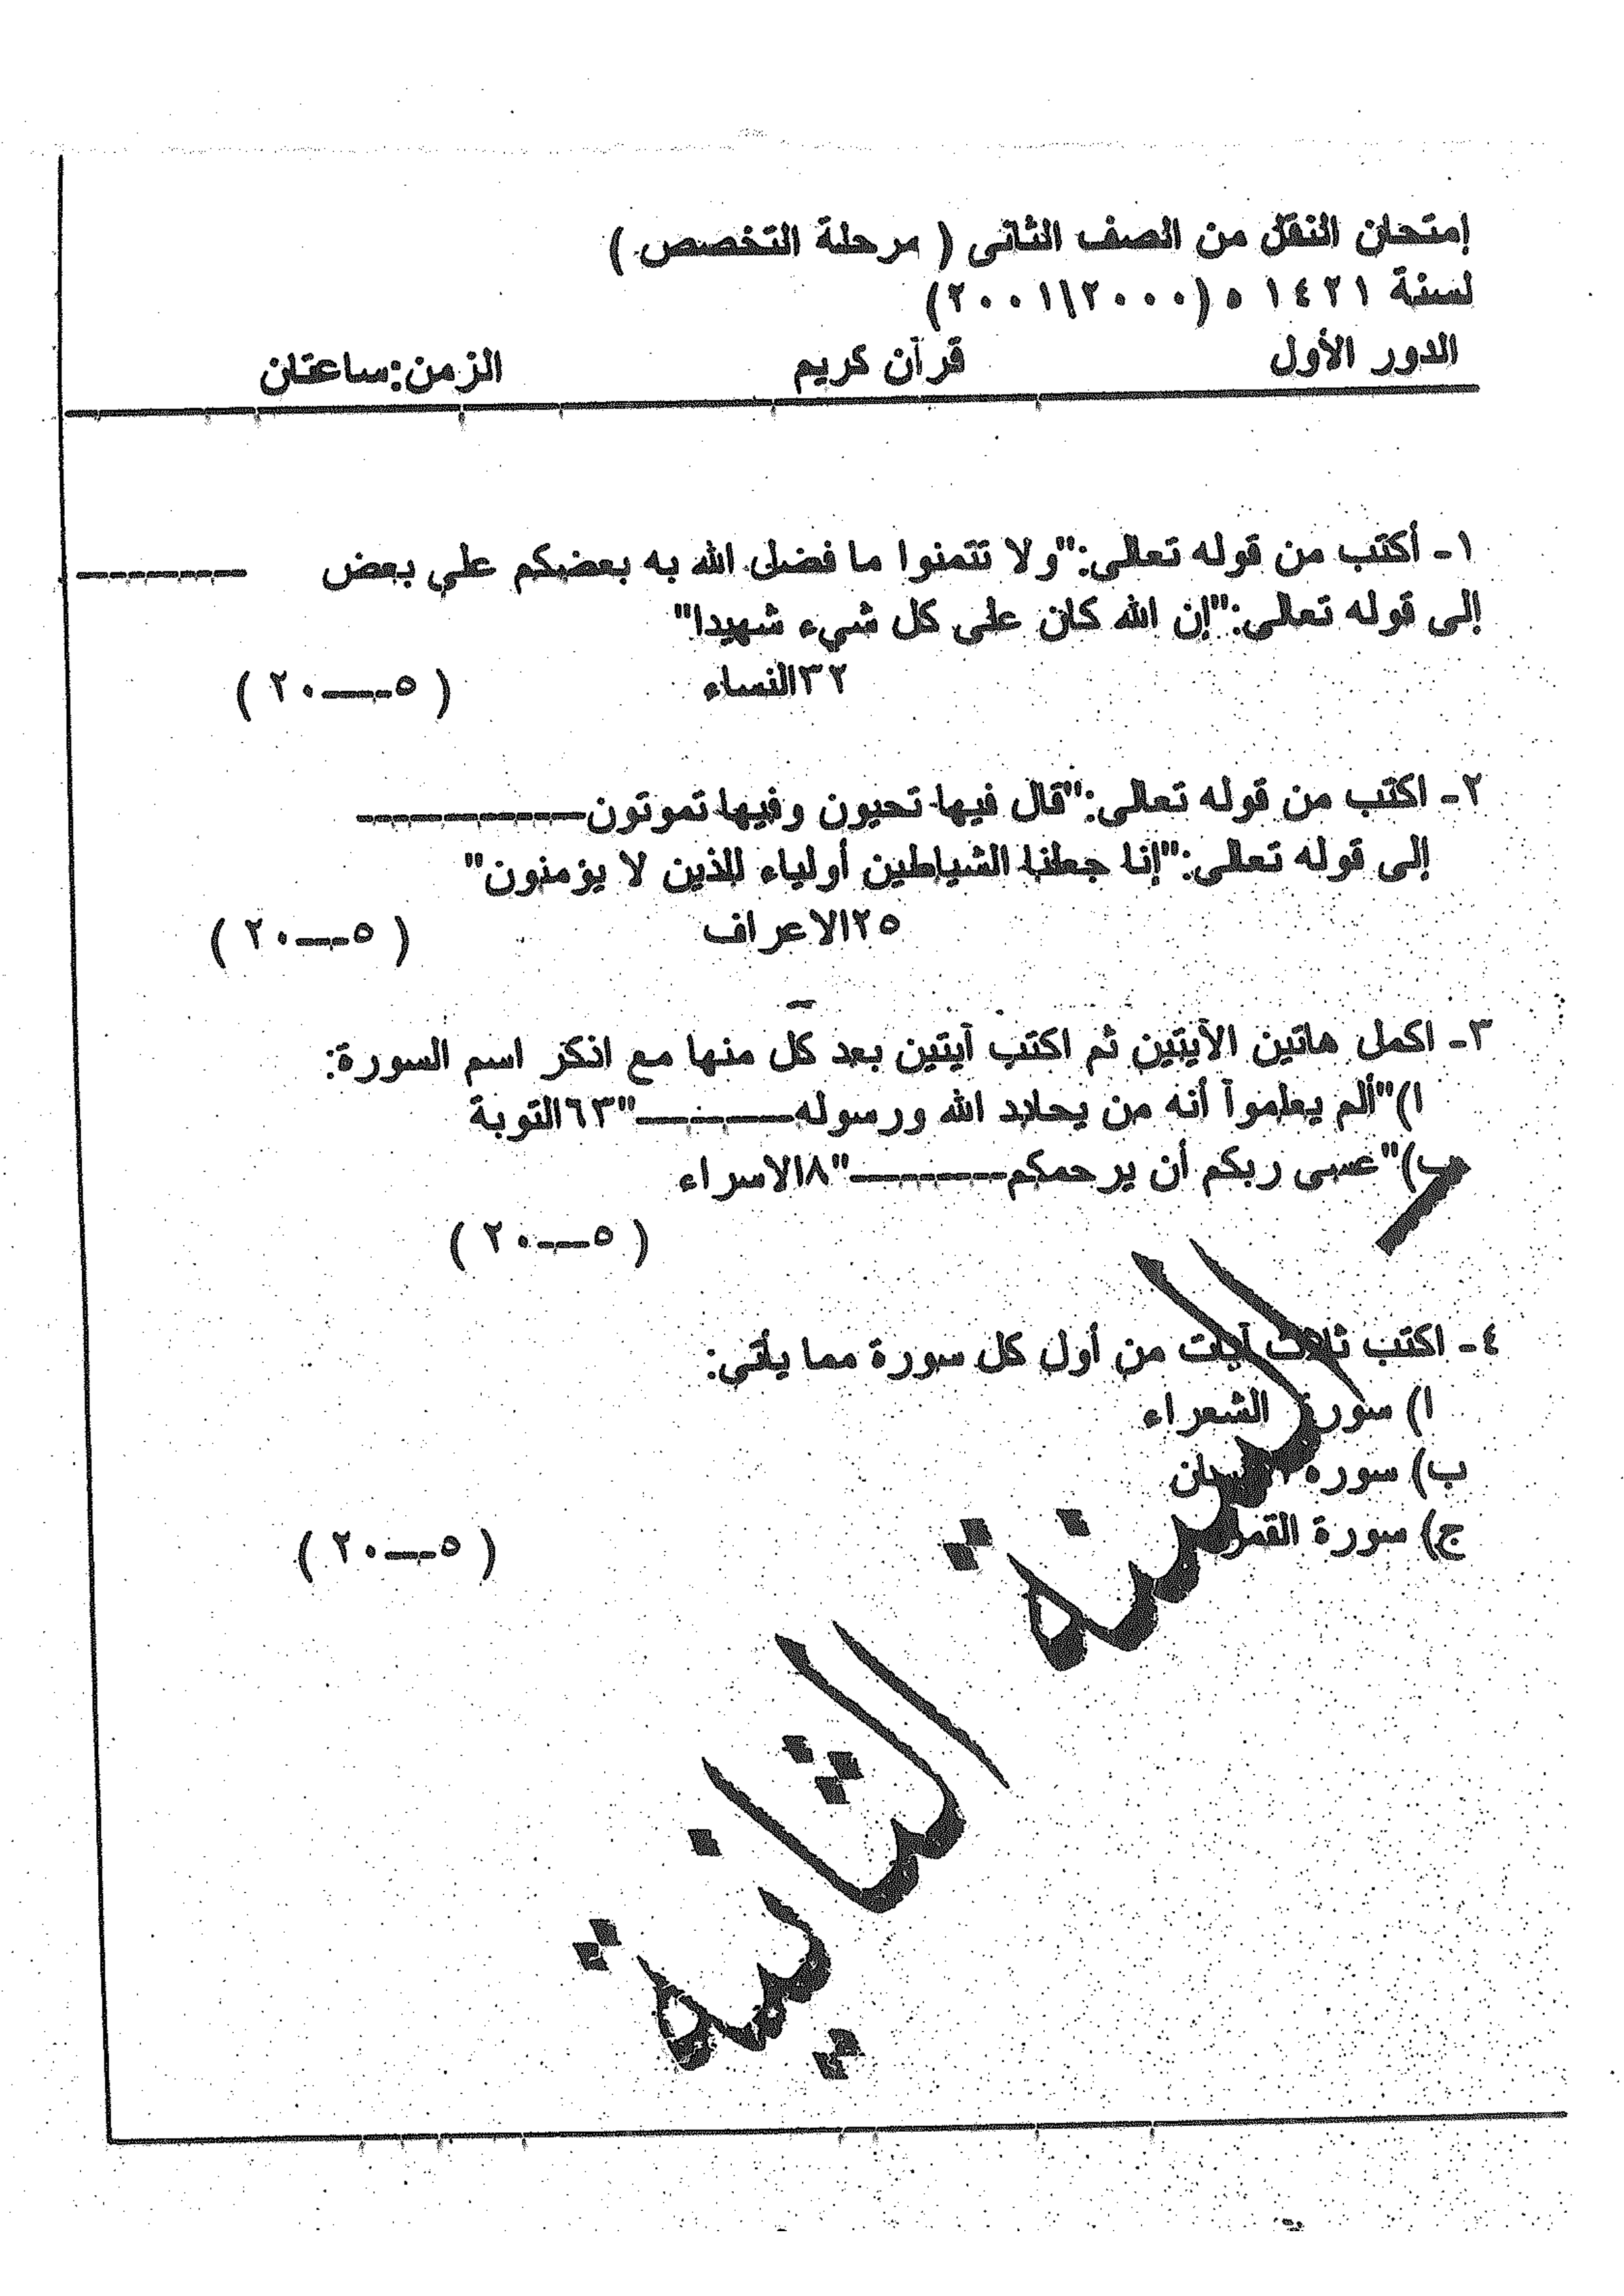 إمتحان النقل من الصف الثانى ( مرحلة التخصص )
لسنة ١٤٢١ ه (٢٠٠٠\٢٠٠١)
الدور الأول قرآن كريم الزمن:ساعتان
١- أكتب من قوله تعالى:"ولا تتمنوا ما فضل الله به بعضكم علي بعض ----------
إلى قوله تعالى:"إن الله كان على كل شيء شهيدا"
٣٢النساء ( ٥---٢٠ )
٢- اكتب من قوله تعالى:"قال فيها تحيون وفيها تموتون-------------
إلى قوله تعالى:"إنا جعلنا الشياطين أولياء للذين لا يؤمنون"
٢٥الاعراف ( ٥---٢٠ )
٣- اكمل هاتين الآيتين ثم اكتب آيتين بعد كل منها مع اذكر اسم السورة:
ا)"ألم يعلموآ أنه من يحادد الله ورسوله---------"٦٣التوبة
ب)"عسى ربكم أن يرحمكم---------"٨الاسراء
( ٥---٢٠ )
٤- اكتب ثلاث آيات من أول كل سورة مما يأتى:
ا) سورة الشعراء
ب) سورة
ج) سورة القمر
( ٥---٢٠ )
السنة الثانية